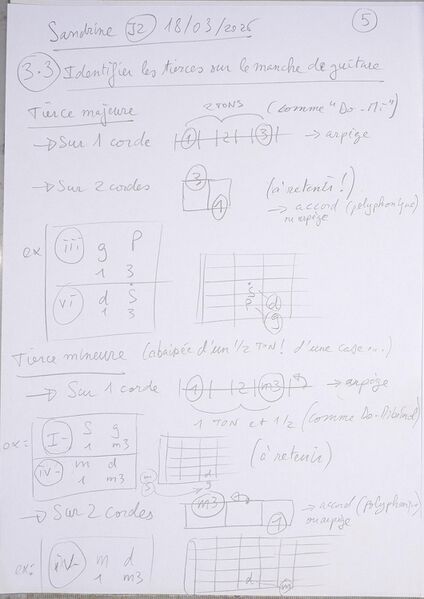 Sandrine J2 18/03/2026
5
3.3 Identifier les tierces sur le manche de guitare
Tierce majeure
2 TONS (comme "Do-Mi")
→ Sur 1 corde 1 2 3 → arpège
→ Sur 2 cordes 3 1 (à retenir!)
→ accord (polyphonique)
ou arpège
ex
iii g P
1 3
vi d S
1 3
S
P d
g
Tierce mineure (abaissée d'un 1/2 TON! d'une case...)
→ Sur 1 corde 1 2 m3 → arpège
1 TON et 1/2 (comme Do-Mibémol)
ex:
I- S g
1 m3
iv- m d
1 m3
(à retenir)
→ Sur 2 cordes m3 1 → accord (polyphonique)
ou arpège
ex:
iv- m d
1 m3
d m